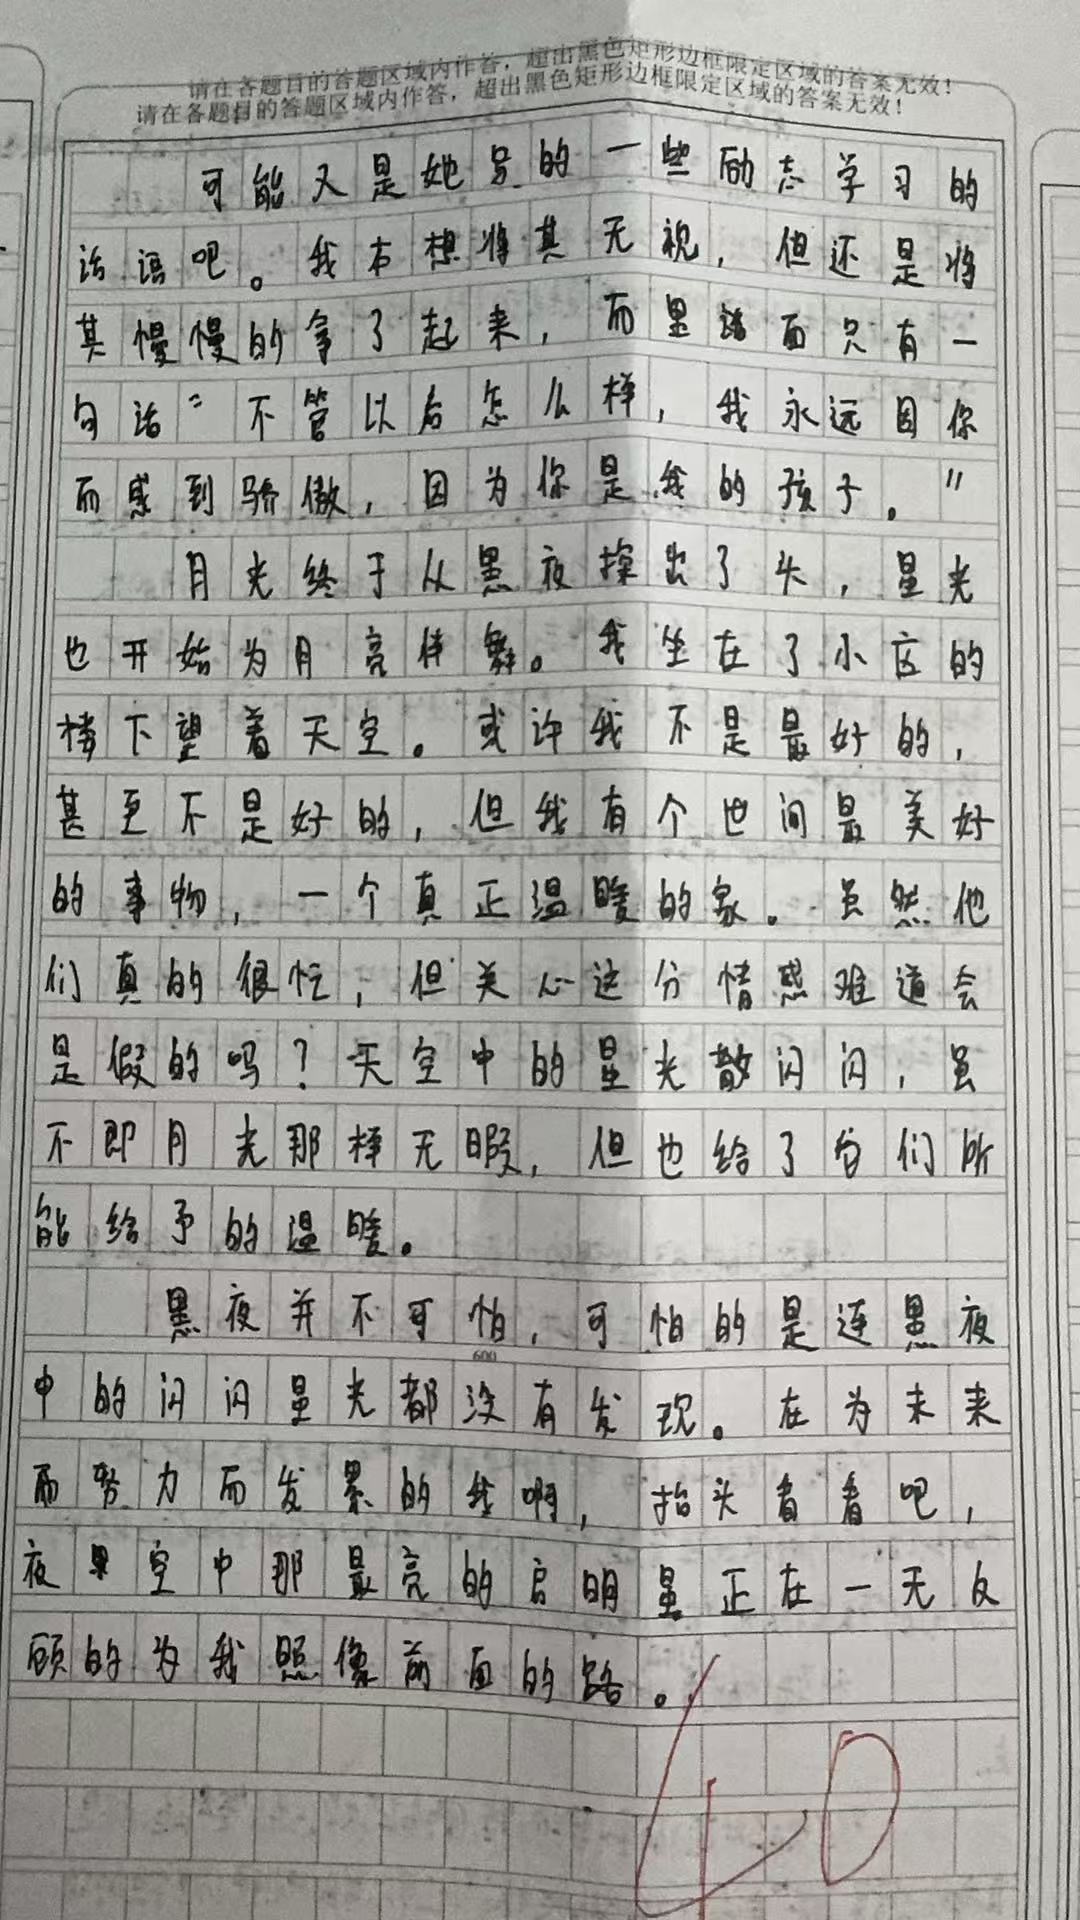 请在各题目的答题区域内作答，超出黑色矩形边框限定区域的答案无效！
请在各题目的答题区域内作答，超出黑色矩形边框限定区域的答案无效！
可能又是她写的一些励志学习的
话语吧。我本想将其无视，但还是将
其慢慢的拿了起来，而里面只有一
句话“不管以后怎么样，我永远因你
而感到骄傲，因为你是我的孩子。”
月光终于从黑夜探出了头，星光
也开始为月亮伴舞。我坐在了小区的
楼下望着天空。或许我不是最好的，
甚至不是好的，但我有个世间最美好
的事物，一个真正温暖的家。虽然他
们真的很忙，但关心这分情感难道会
是假的吗？天空中的星光散闪闪，虽
不即月光那样无暇，但也给了它们所
能给予的温暖。
黑夜并不可怕，可怕的是连黑夜
600
中的闪闪星光都没有发现。在为未来
而努力而发累的我啊，抬头看看吧，
夜空中那最亮的启明星正在一无反
顾的为我照像前面的路。
40